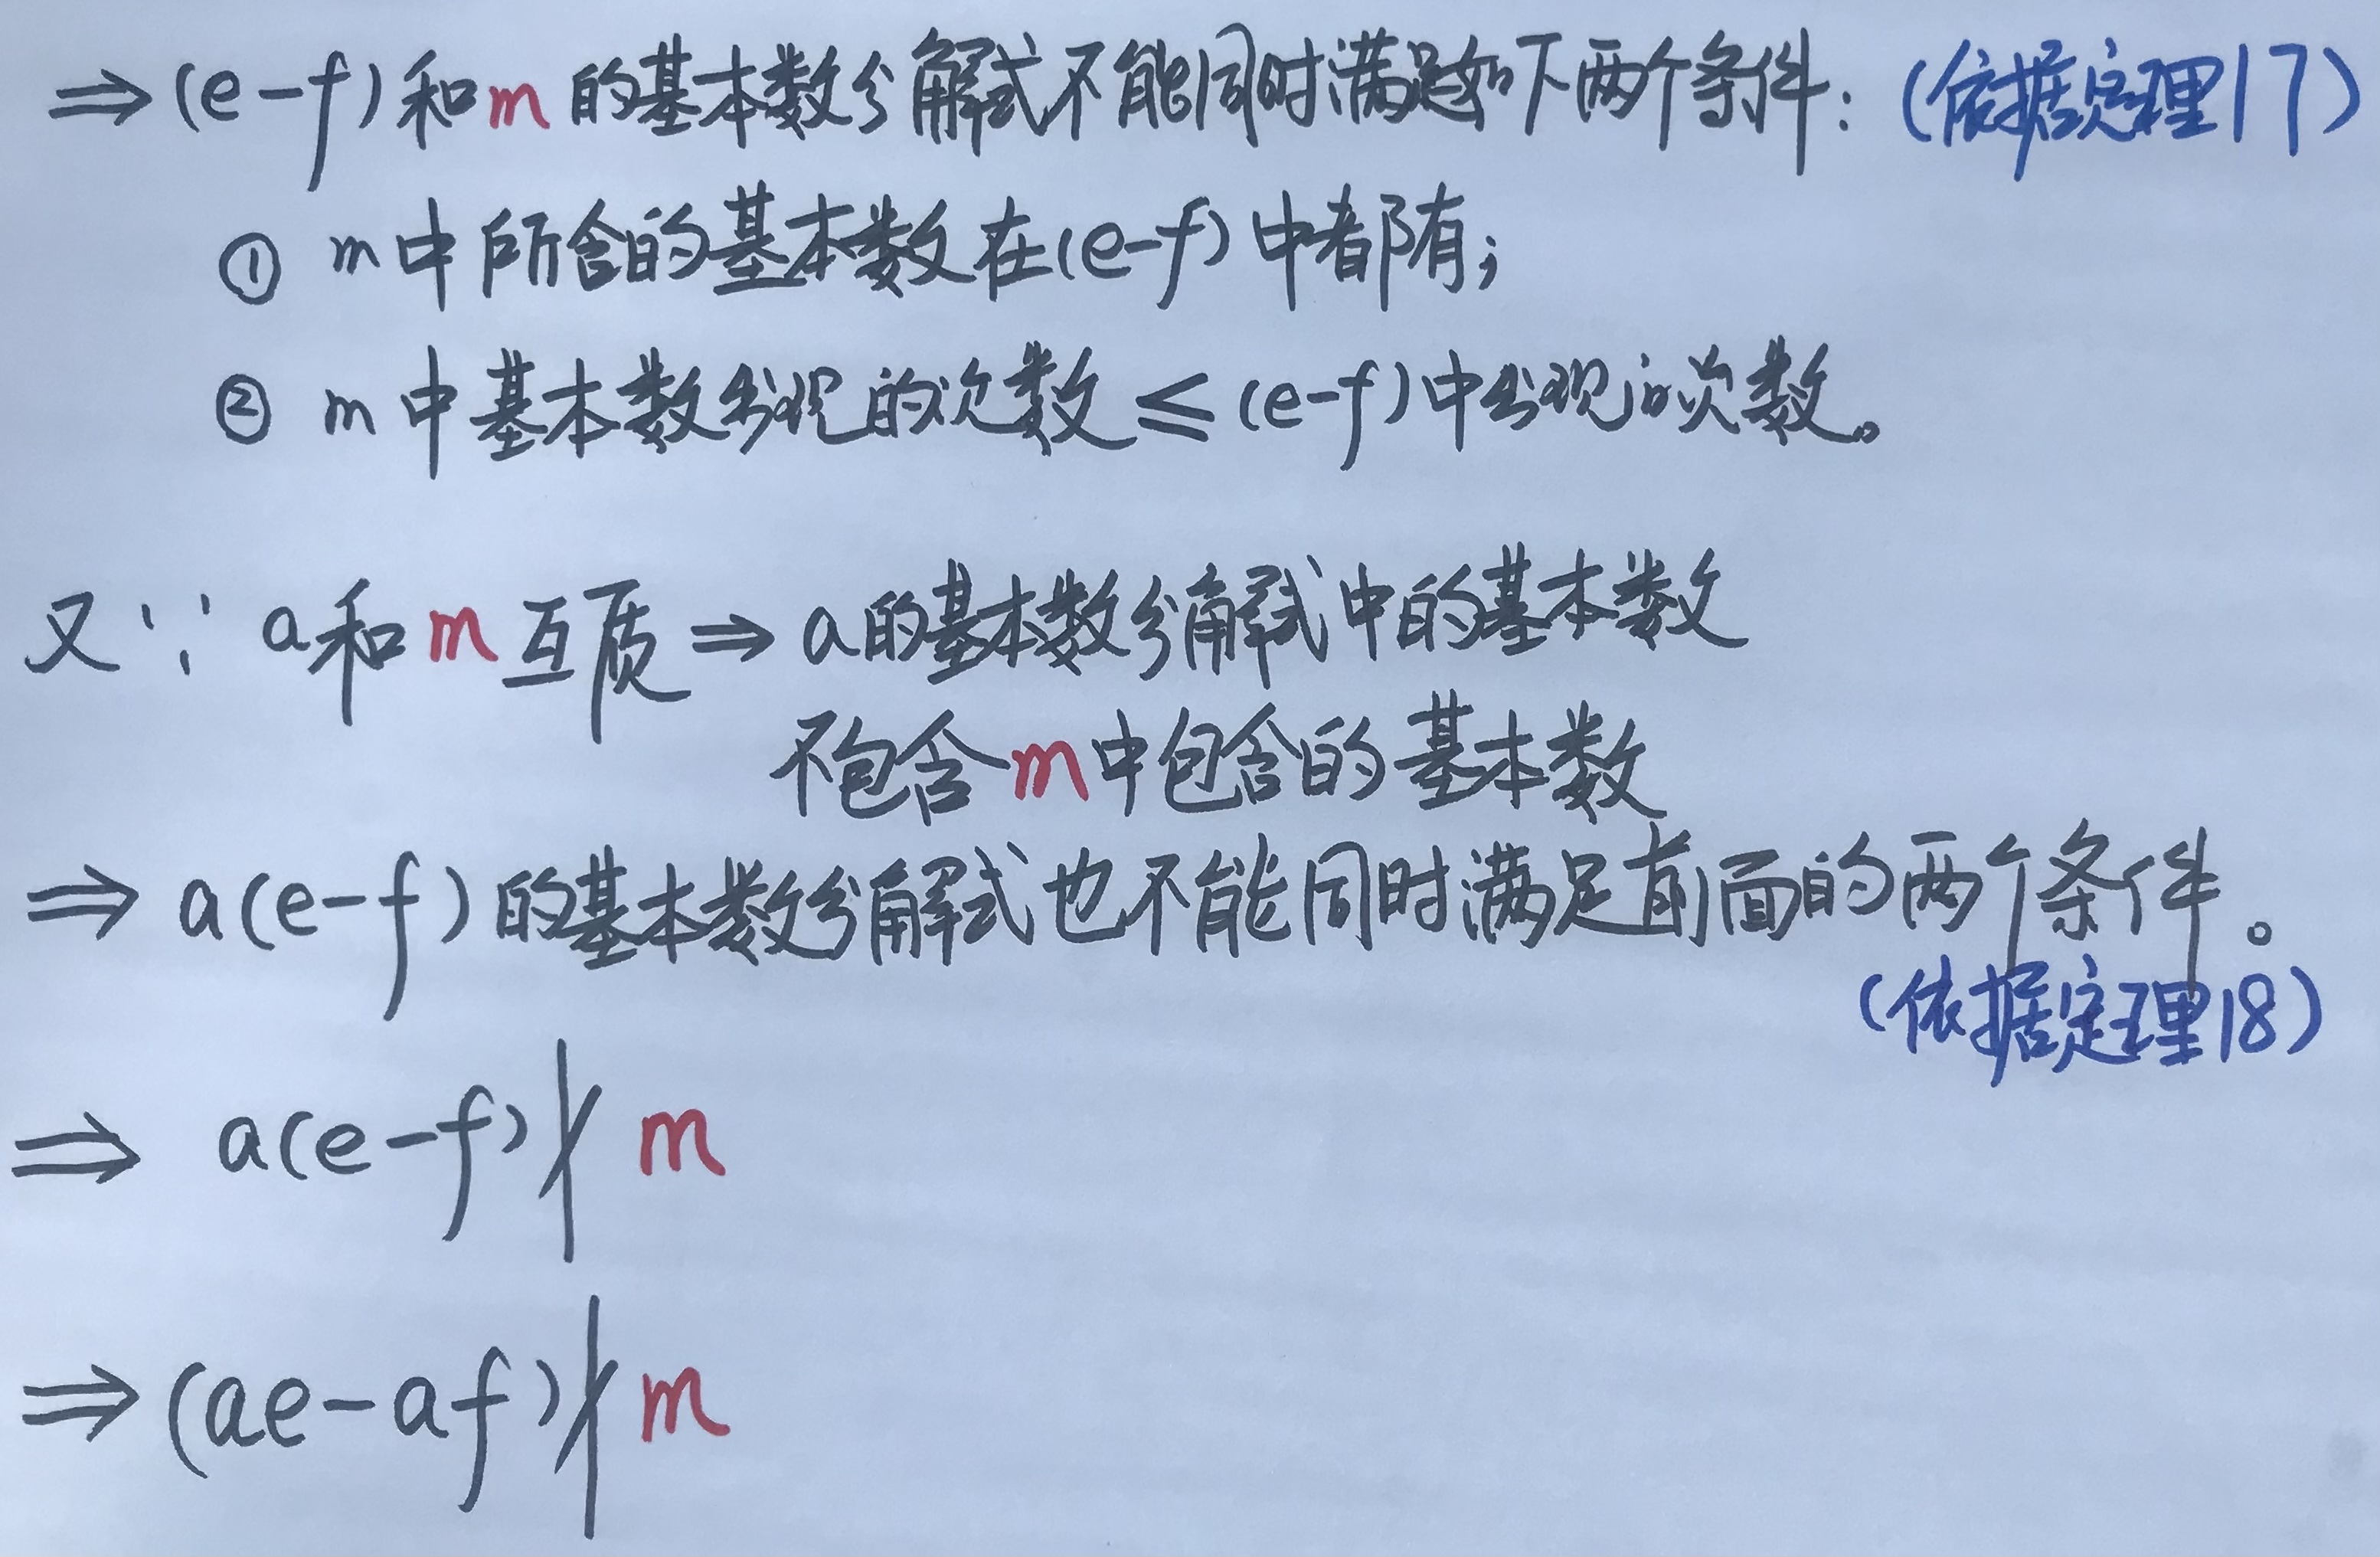 ⇒(e-f)和m的基本数分解式不能同时满足如下两个条件:(依据定理17)
① m中所含的基本数在(e-f)中都有;
② m中基本数出现的次数≤(e-f)中出现的次数。
又∵ a和m互质⇒a的基本数分解式中的基本数
不包含m中包含的基本数
⇒ a(e-f)的基本数分解式也不能同时满足前面的两个条件。
(依据定理18)
⇒ a(e-f)∤m
⇒(ae-af)∤m